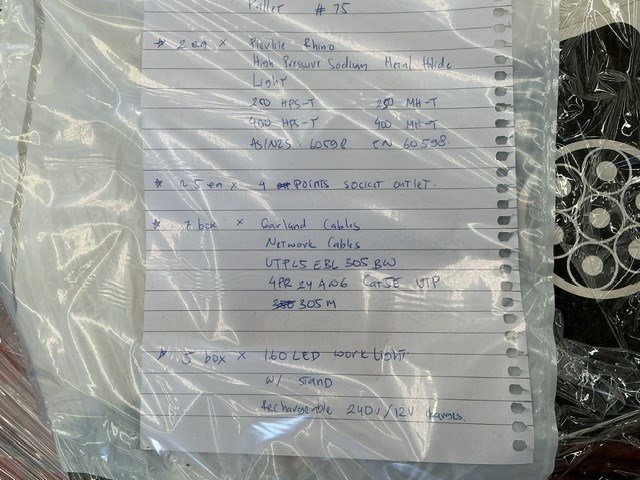 Pallet # 75
* 2 ea x Pierlite Rhino
High Pressure Sodium Metal Halide
Light
250 HPS-T 250 MH-T
400 HPS-T 400 MH-T
AS/NZS 60598 EN 60598.
* 25 ea x 4 POINTS SOCKET OUTLET.
* 7 box x Garland Cables
Network Cables
UTPL5 EBL 305 BW
4PR 24 AWG Cat5E UTP
305 M
* 5 box x 160 LED work light.
W/ STAND
Rechargeable 240V/12V